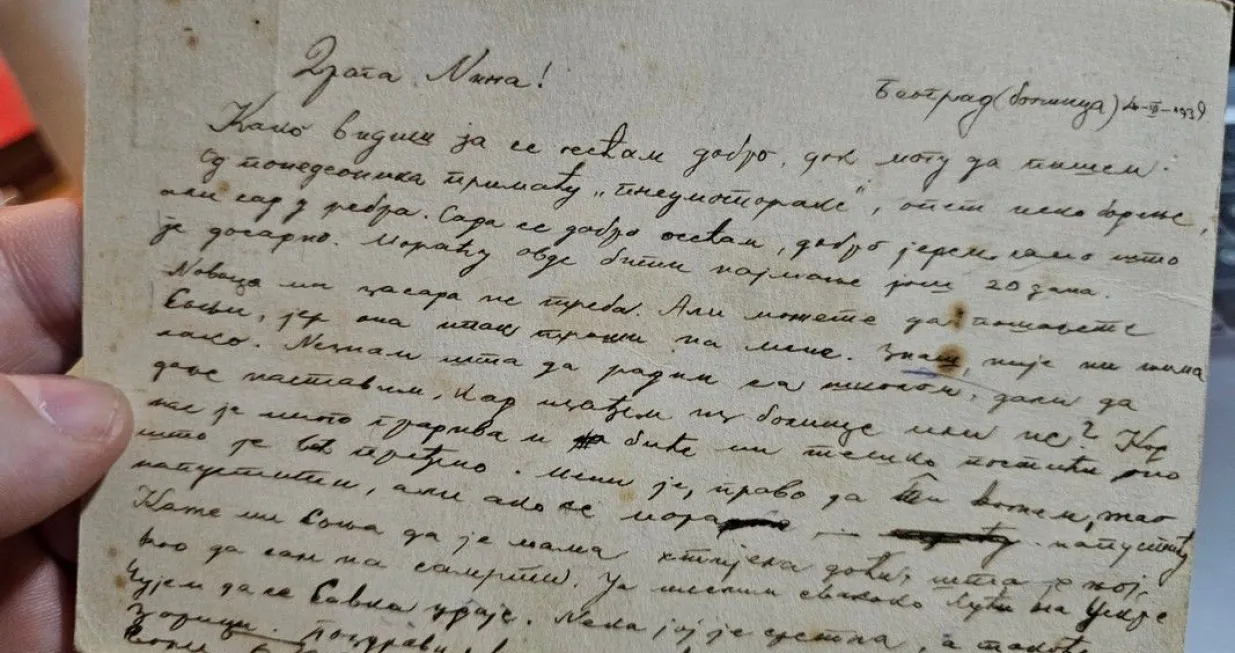 Драга Нина!
Београд (болница) 4-III-1939
Како видиш ја се осећам добро, док могу да пишем.
Од понедеоника примаћу „пнеумоторакс“, опет неко борење,
али сад у ребра. Сада се добро осећам, добро једем, само што
је досадно. Мораћу овде бити најмање још 20 дана.
Новаца ми засада не треба. Али можете да пошаљете
Соњи, јер она ипак троши на мене. Знаш, није ни њима
лако. Незнам шта да радим са школом, дали да
даље наставим, кад изађем из болнице или не? Код
нас је много градива и биће ми тешко постићи оно
што је пређено. Мени је, право да Ти кажем, жао
напустити, али ако се мора напустићу
Каже ми Соња да је мама хтијела доћи, шта је њој,
као да сам на самрти. Ја мислим свакако кући на Ускрс
Чујем да се Савка удаје. Нека јој је сретна, а такође
Зорици. Поздрави